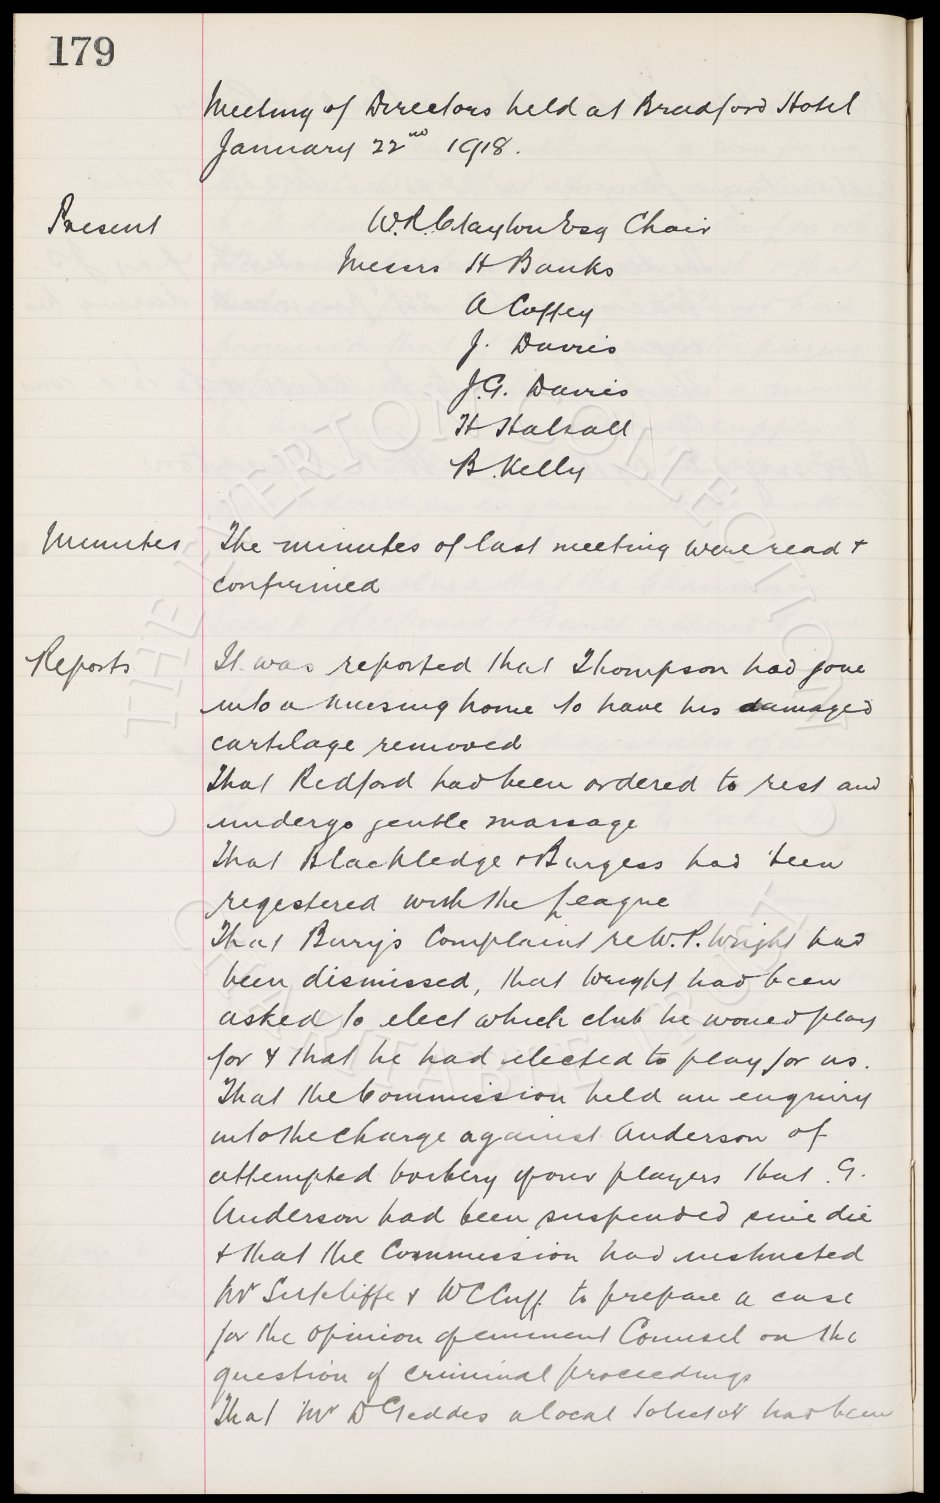 179
Meeting of Directors held at Bradford Hotel
January 22nd 1918.
Present
W.R. Clayton Esq Chair
Messrs H Banks
A Coffey
J. Davies
J.G. Davies
H Halsall
B. Kelly
Minutes The minutes of last meeting were read +
confirmed
Reports It was reported that Thompson had gone
into a nursing home to have his damaged
cartilage removed
That Redford had been ordered to rest and
undergo gentle massage
That Blackledge + Burgess had been
regestered with the League
That Bury's Complaint re W.P. Wright had
been dismissed, that Wright had been
asked to elect which club he would play
for & that he had elected to play for us.
That the Commission held an enquiry
into the charge against Anderson of
attempted bribery of our players that G.
Anderson had been suspended sine die
+ that the Commission had instructed
Mr Sutcliffe + W C Cuff to prepare a case
for the opinion of eminent Counsel on the
question of criminal proceedings
That Mr D Geddes a local Solicitor had been
THE EVERTON COLLECTION
CHARITABLE TRUST